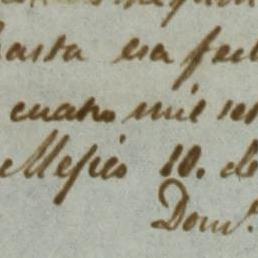 hasta esa fec
cuatro mil se
Mejico 10. de
Dom.